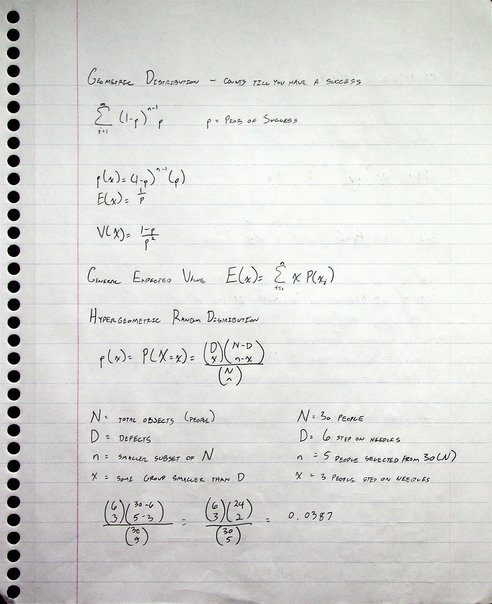 GEOMETRIC DISTRIBUTION - COUNTS TILL YOU HAVE A SUCCESS
∞ Σ i=1 (1-p)^(n-1) p    p = PROB OF SUCCESS
p(x) = (1-p)^(n-1) (p)
E(x) = 1/p
V(X) = (1-p)/p²
GENERAL EXPECTED VALUE    E(x) = Σ_(i=1)^n x P(x_i)
HYPERGEOMETRIC RANDOM DISTRIBUTION
p(x) = P(X=x) = (D x)(N-D n-x) / (N n)
N = TOTAL OBJECTS (PEOPLE)    N = 30 PEOPLE
D = DEFECTS    D = 6 STEP ON NEEDLES
n = SMALLER SUBSET OF N    n = 5 PEOPLE SELECTED FROM 30(N)
X = SOME GROUP SMALLER THAN D    X = 3 PEOPLE STEP ON NEEDLES
(6 3)(30-6 5-3) / (30 5) = (6 3)(24 2) / (30 5) = 0.0387